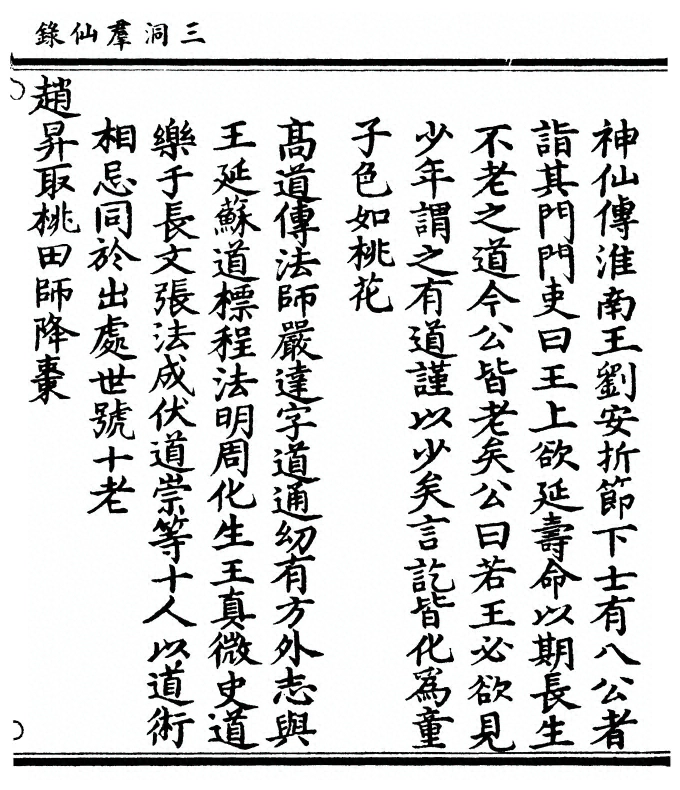 三洞羣仙錄
神仙傳淮南王劉安折節下士有八公者
詣其門門吏曰王上欲延壽命以期長生
不老之道今公皆老矣公曰若王必欲見
少年謂之有道謹以少矣言訖皆化爲童
子色如桃花
高道傳法師嚴達字道通幼有方外志與
王延蘇道標程法明周化生王真微史道
樂于長文張法成伏道崇等十人以道術
相忌同於出處世號十老
趙昇取桃田師降棗